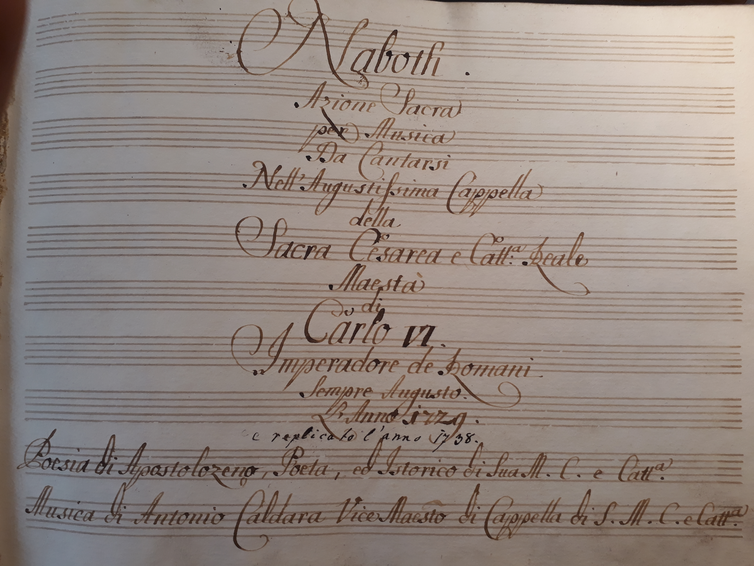 Naboth.
Azione Sacra
per Musica
Da Cantarsi
Nell'Augustissima Cappella
della
Sacra Cesarea e Catt.ª Reale
Maestà
di
Carlo VI.
Imperadore de Romani.
Sempre Augusto.
L'Anno 1729.
e replicato l'anno 1738.
Poesia di Apostolo Zeno, Poeta, ed Istorico di Sua M. C. e Catt.ª
Musica di Antonio Caldara Vice Maestro di Cappella di S. M. C. e Catt.ª